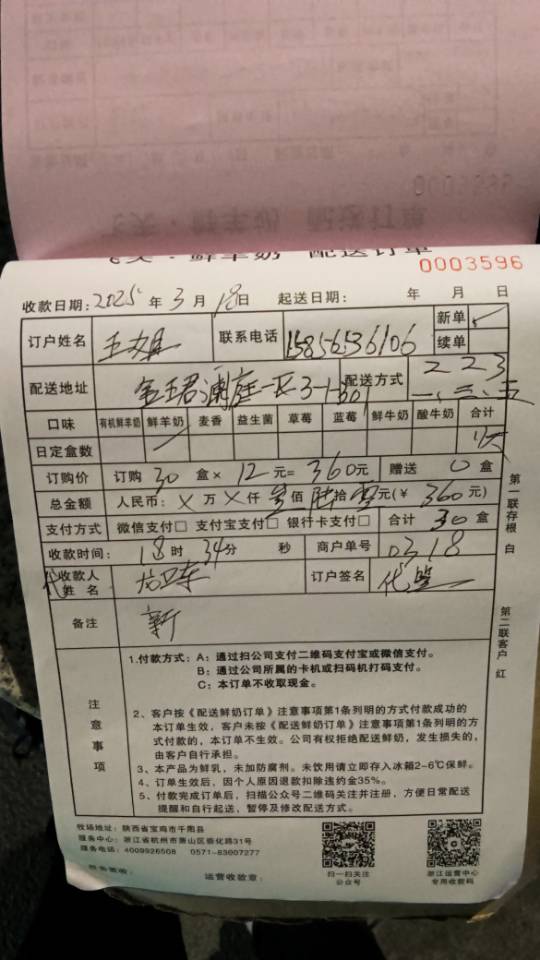 飞天·鲜羊奶 配送订单
0003596
收款日期：2025年3月18日 起送日期： 年 月 日
订户姓名 王姐 联系电话 15856536106 新单 ✓
续单
配送地址 金珺澜庭一区3-1-301 配送方式 223
一、三、五
口味 有机鲜羊奶 鲜羊奶 麦香 益生菌 草莓 蓝莓 鲜牛奶 酸牛奶 合计
日定盒数
订购价 订购 30 盒× 12元= 360元 赠送 0盒
总金额 人民币：×万×仟叁佰陆拾零元(￥ 360元)
支付方式 微信支付□ 支付宝支付□ 银行卡支付□ 合计 30 盒
收款时间： 18时 34分 秒 商户单号 0318
代收款人
姓名 订户签名 代签
备注 新
第一联存根 白
第二联客户 红
注意事项
1.付款方式：A：通过扫公司支付二维码支付宝或微信支付。
B：通过公司所属的卡机或扫码机打码支付。
C：本订单不收取现金。
2、客户按《配送鲜奶订单》注意事项第1条列明的方式付款成功的
本订单生效，客户未按《配送鲜奶订单》注意事项第1条列明的方
式付款的，本订单不生效。公司有权拒绝配送鲜奶，发生损失的，
由客户自行承担。
3、本产品为鲜乳，未加防腐剂。未饮用请立即存入冰箱2-6℃保鲜。
4、订单生效后，因个人原因退款扣除违约金35%。
5、付款完成订单后，扫描公众号二维码关注并注册，方便日常配送
提醒和自行起送，暂停及修改配送方式。
牧场地址：陕西省宝鸡市千阳县
服务中心：浙江省杭州市萧山区振化路31号
服务电话：4009926508 0571-83007277
财务签收： 运营收款章：
扫一扫关注
公众号
浙江运营中心
专用收款码